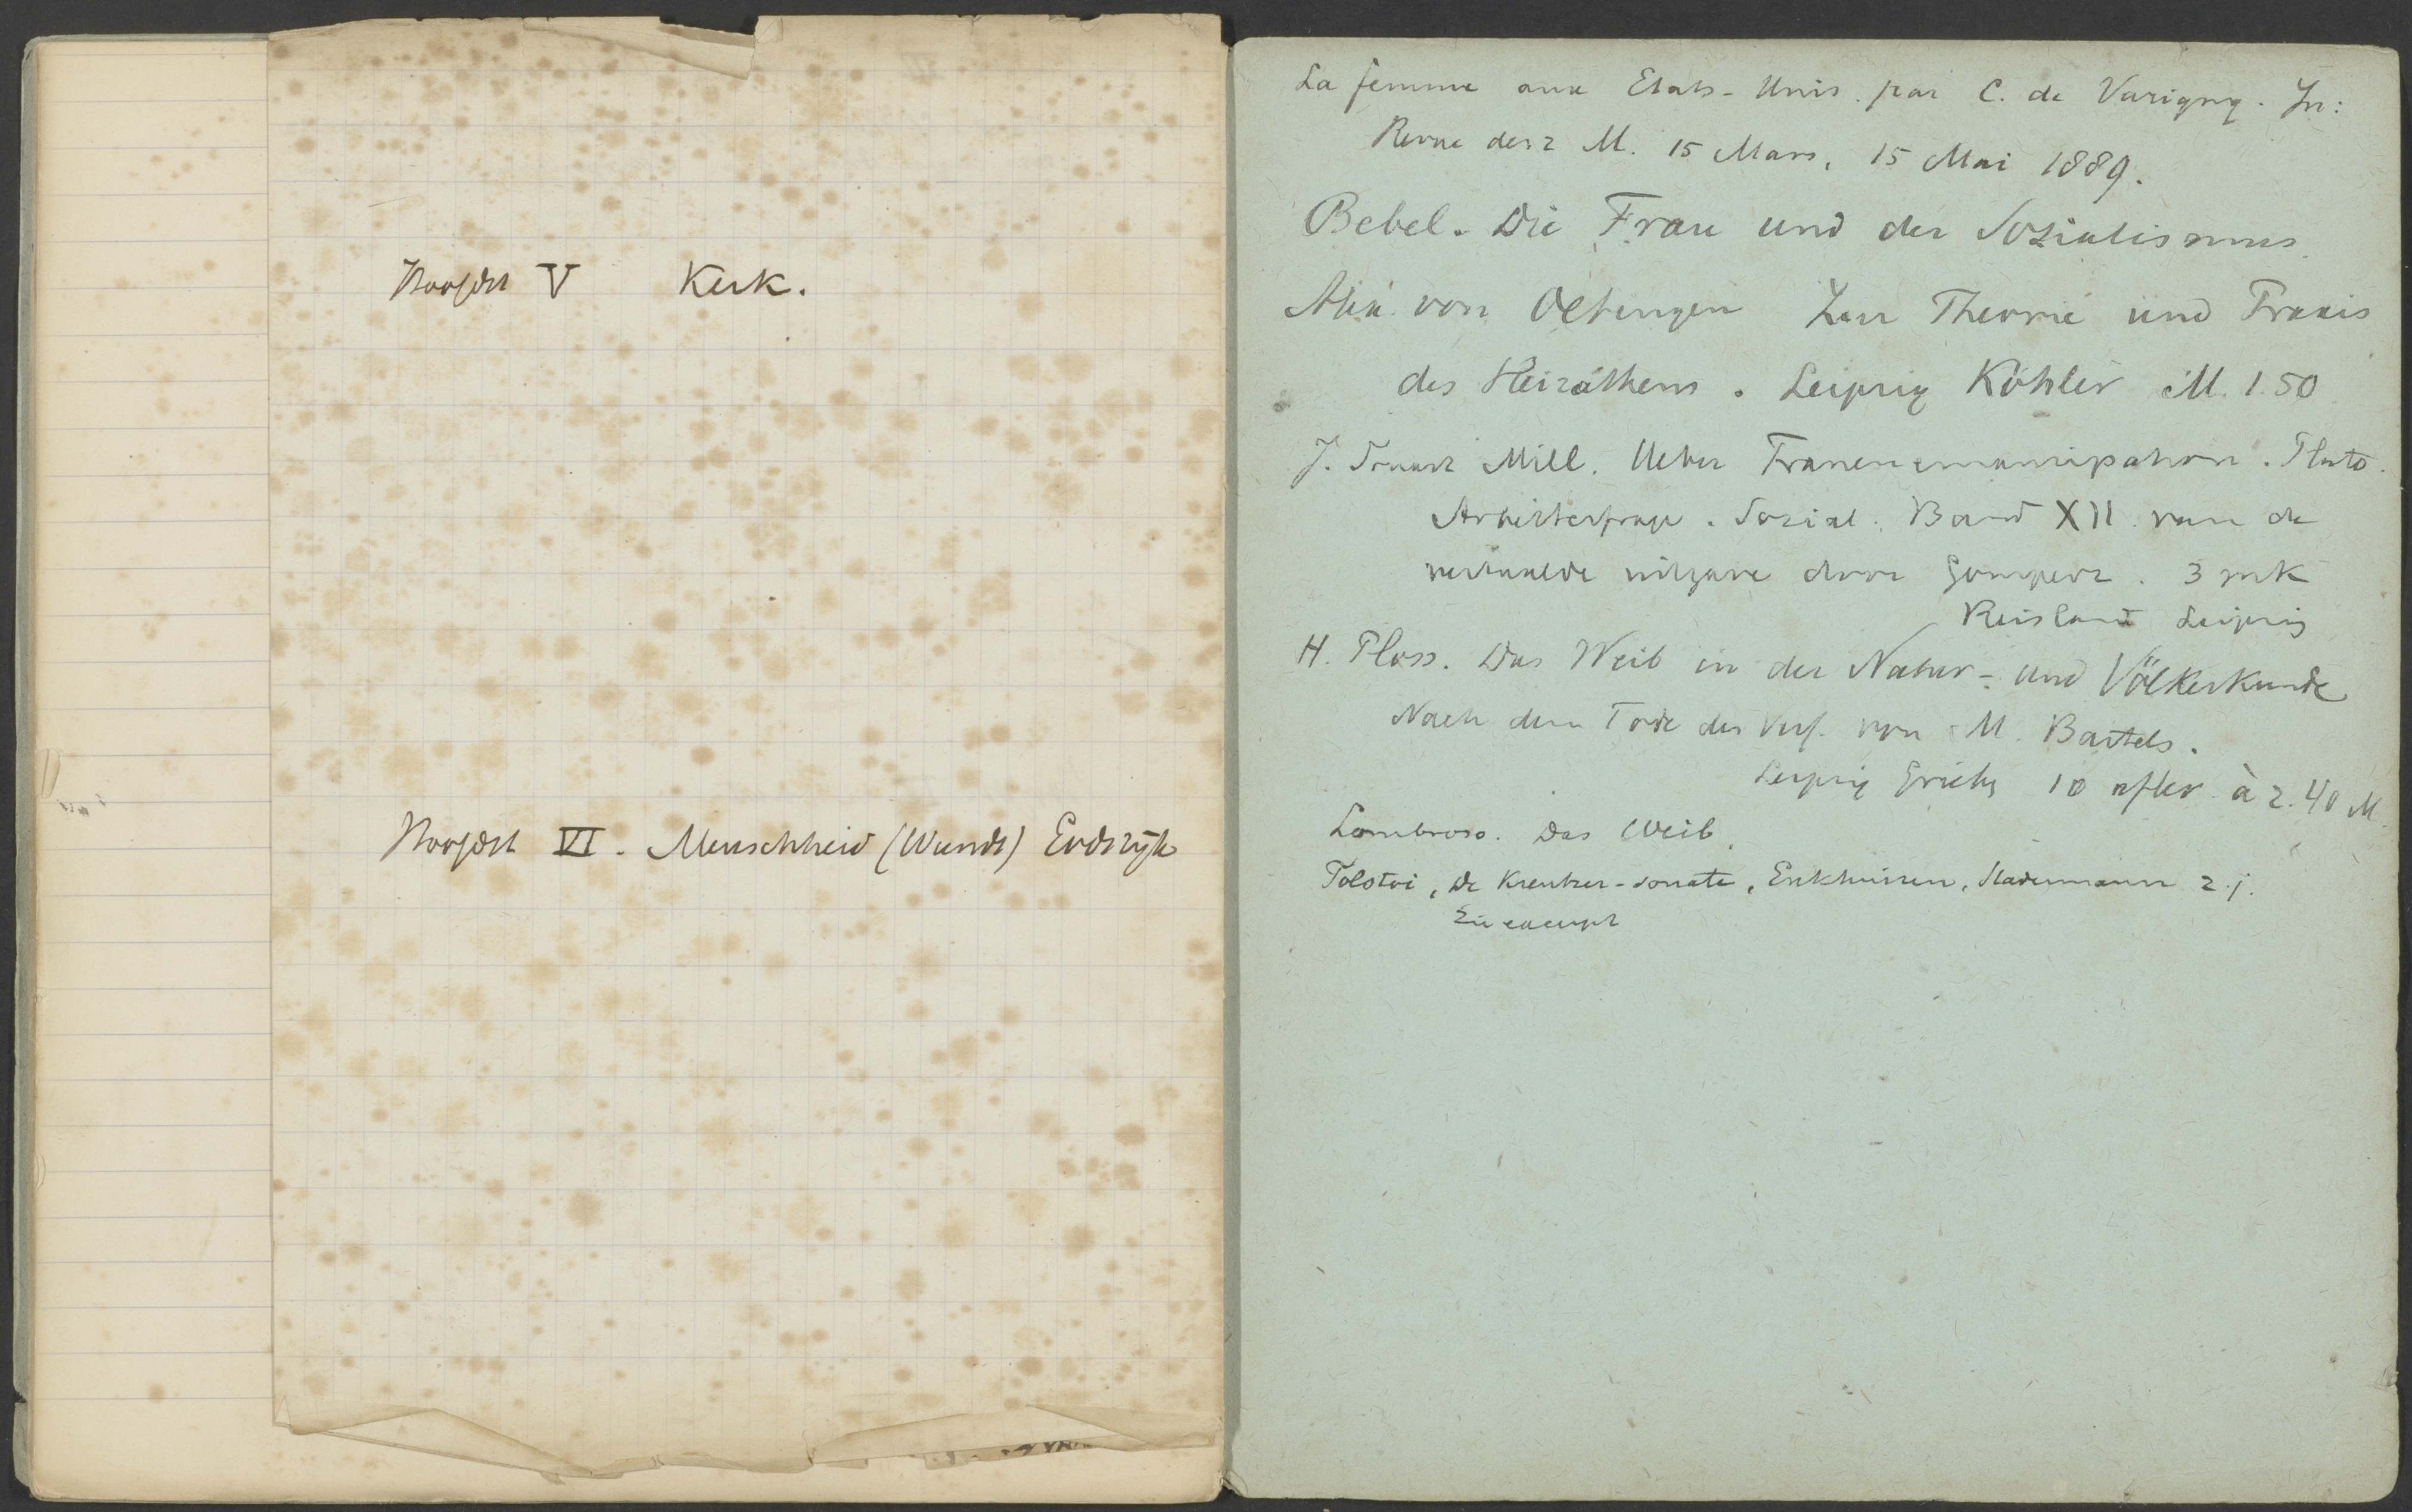 Hoofdst V Kerk.
Hoofdst VI. Menschheid (Wundt) Godsrijk
La femme aux Etats-Unis. par C. de Varigny. In:
Revue des 2 M. 15 Mars, 15 Mai 1889.
Bebel. Die Frau und der Sozialismus.
Alex. von Oettingen Zur Theorie und Praxis
des Heirathens. Leipzig Köhler M. 1.50
J. Stuart Mill. Ueber Frauenemancipation. Plato.
Arbeiterfrage. Sozial. Band XII van de
vertaalde uitgave door Gomperz. 3 mk
Reisland Leipzig
H. Ploss. Das Weib in der Natur- und Völkerkunde
Nach dem Tode des Verf. von M. Bartels.
Leipzig 10 à 2.40 M.
Lombroso. Das Weib.
Tolstoi, De Kreutzer-sonate, Enkhuizen, z.j.
Zie excerpt